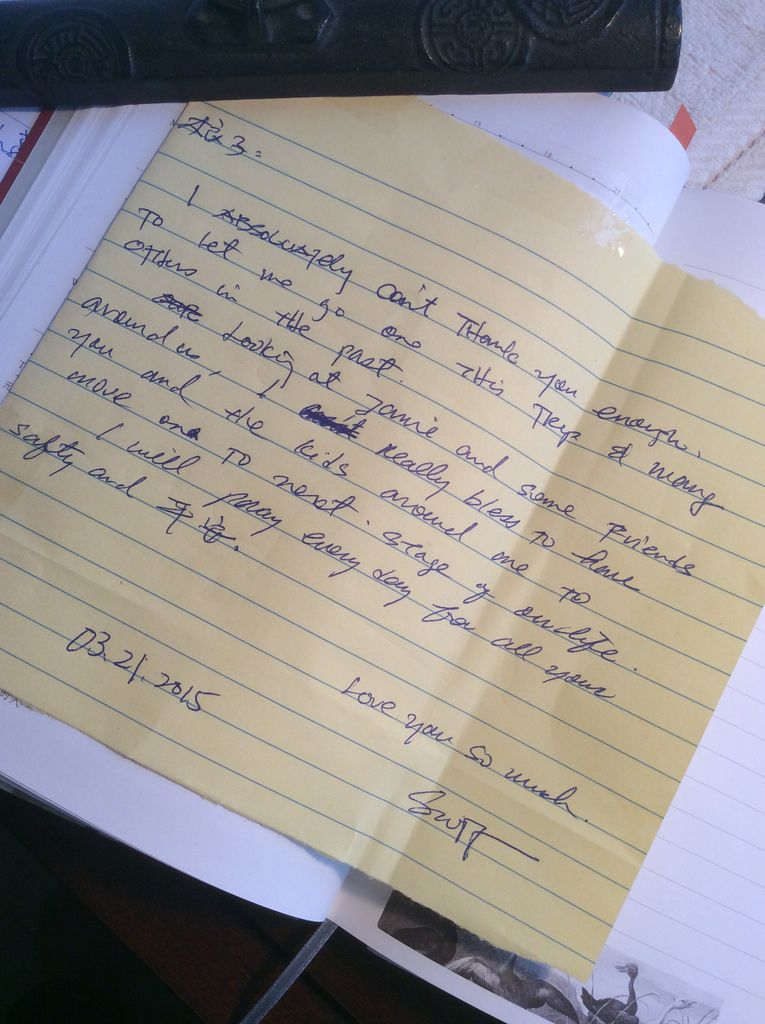 I absolutely can't Thank you enough,
To let me go one This Trip & many
others in the past.
Looking at Jamie and some Friends
around us, I really bless to have
you and the kids around me to
move one To next stage of our life.
I will pray every day for all your
safety and 平安.
03.21.2015
Love you so much.
Scott